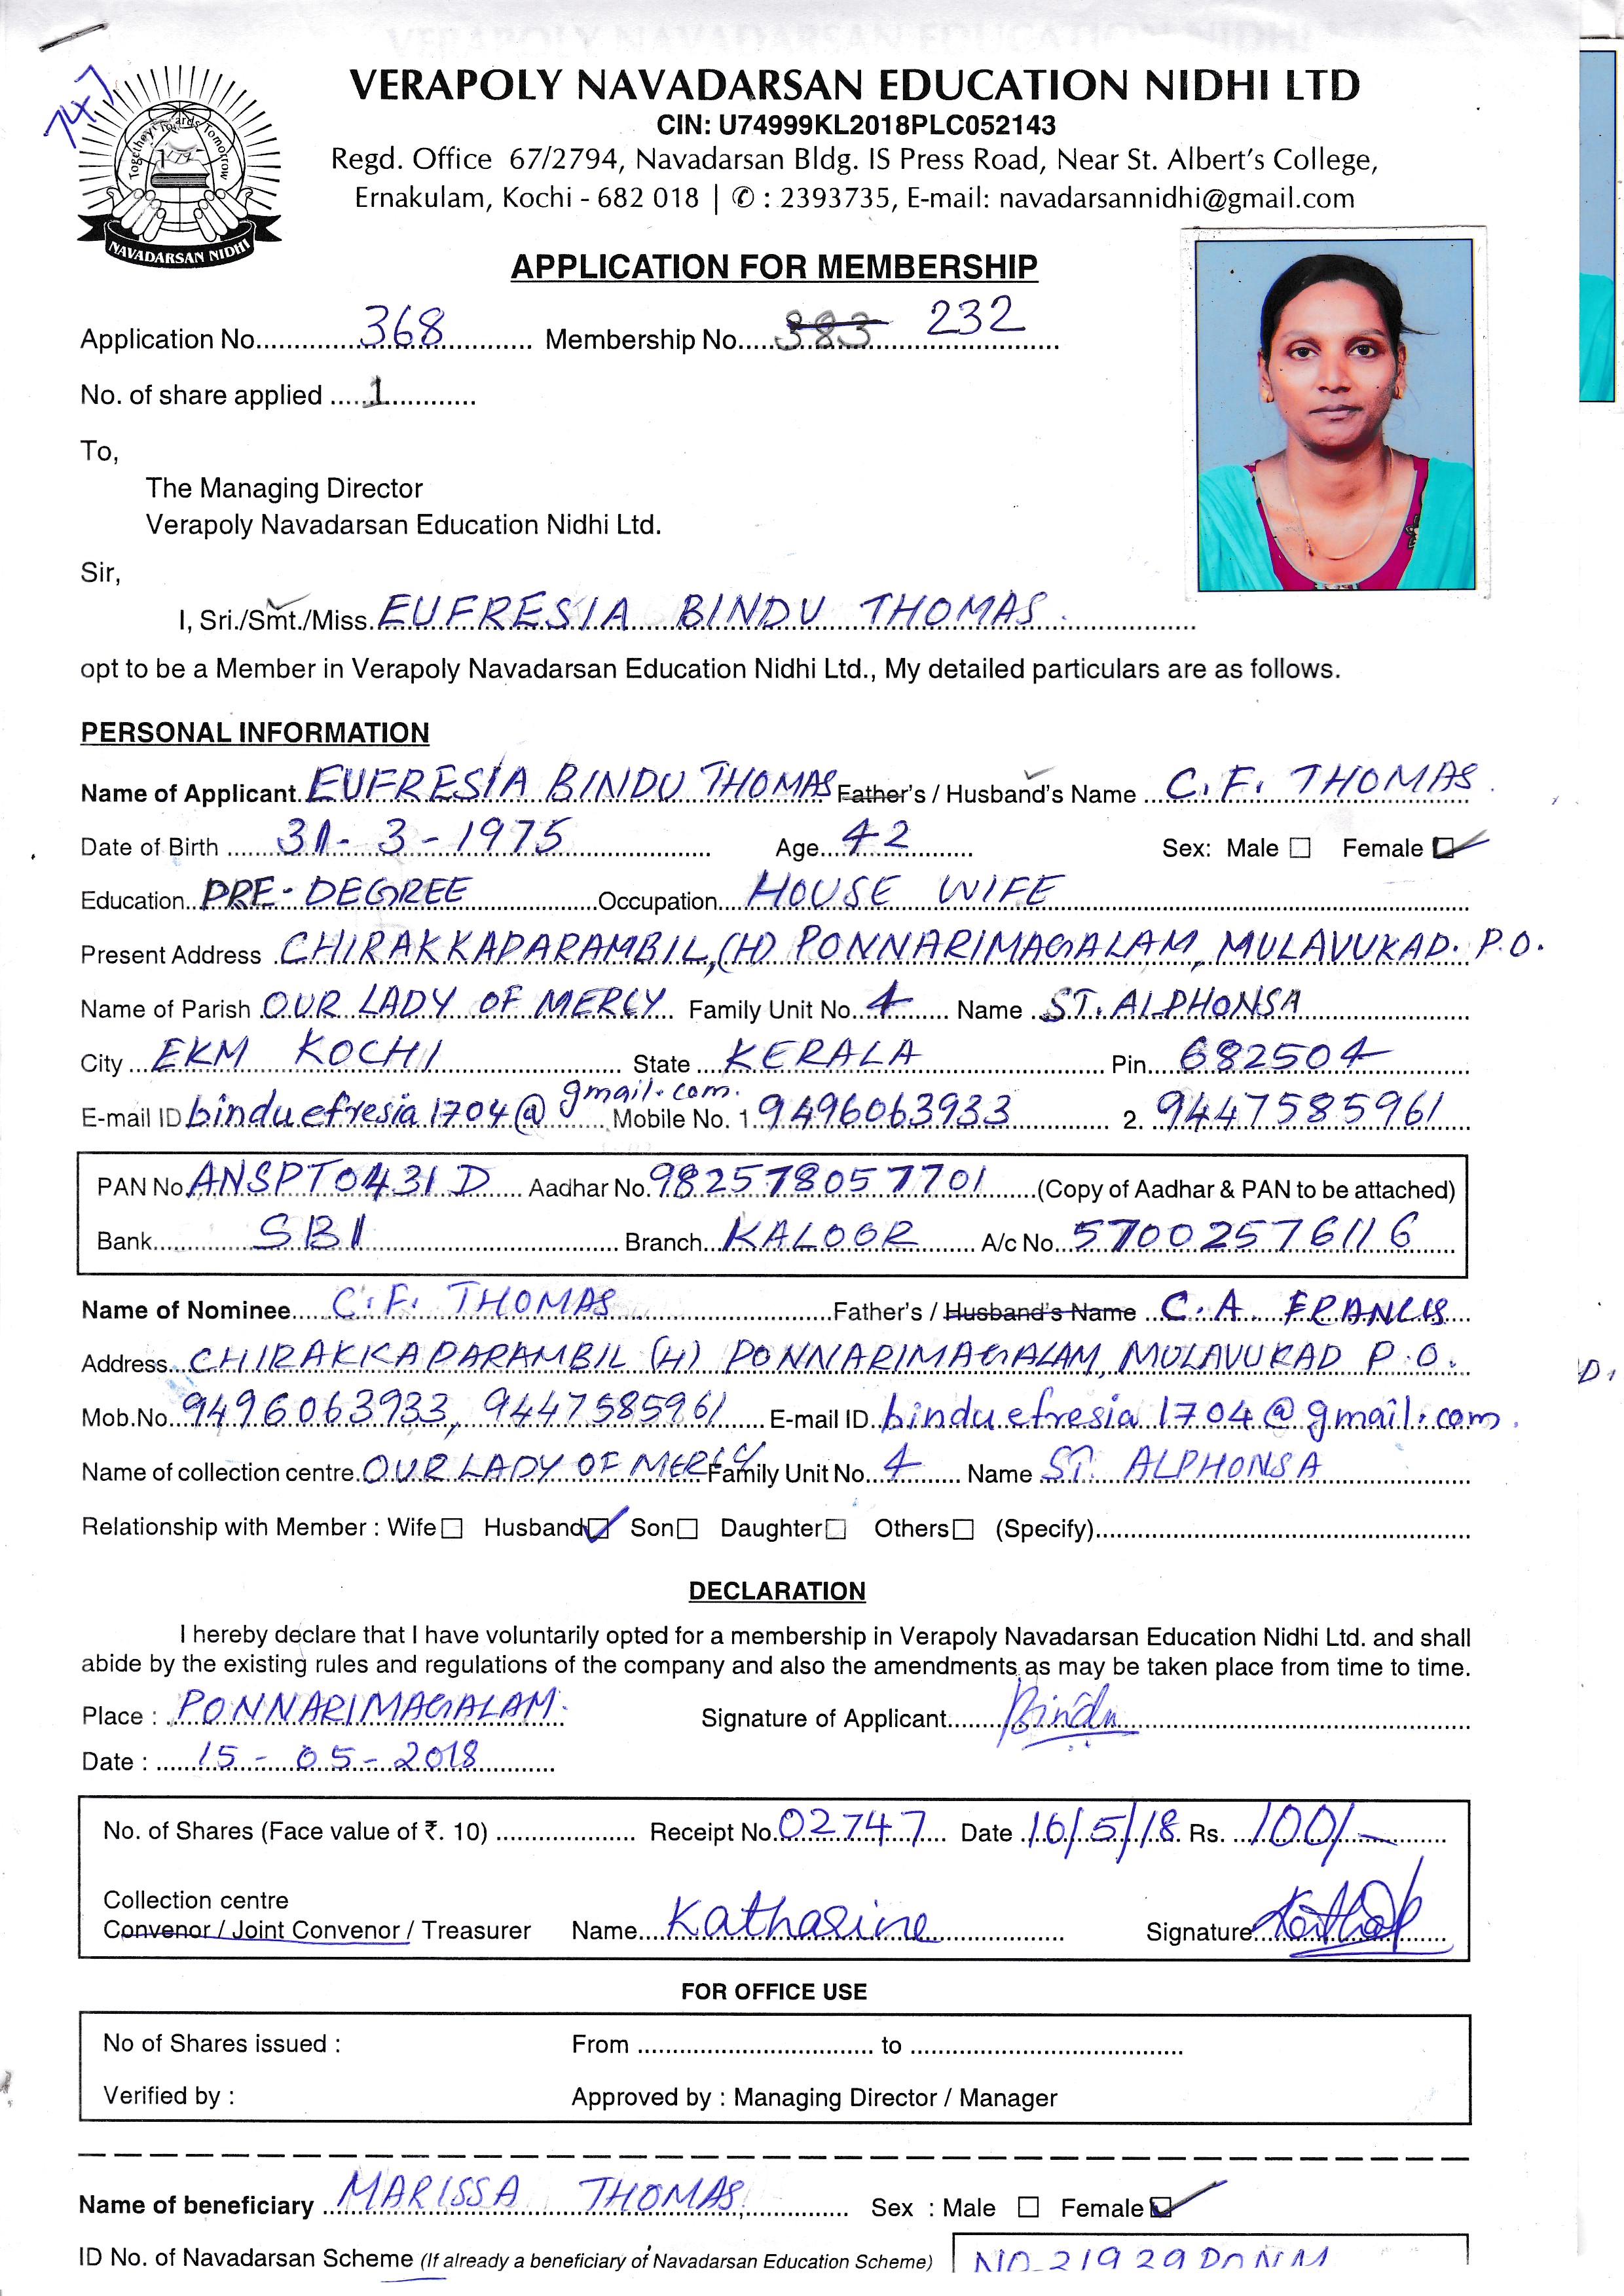 747
Together Towards Tomorrow
NAVADARSAN NIDHI
VERAPOLY NAVADARSAN EDUCATION NIDHI LTD
CIN: U74999KL2018PLC052143
Regd. Office 67/2794, Navadarsan Bldg. IS Press Road, Near St. Albert's College,
Ernakulam, Kochi - 682 018 | ✆ : 2393735, E-mail: navadarsannidhi@gmail.com
APPLICATION FOR MEMBERSHIP
Application No. 368 Membership No. 383 232
No. of share applied 1
To,
The Managing Director
Verapoly Navadarsan Education Nidhi Ltd.
Sir,
I, Sri./Smt./Miss. EUFRESIA BINDU THOMAS.
opt to be a Member in Verapoly Navadarsan Education Nidhi Ltd., My detailed particulars are as follows.
PERSONAL INFORMATION
Name of Applicant EUFRESIA BINDU THOMAS Father's / Husband's Name C.F. THOMAS
Date of Birth 31-3-1975 Age 42 Sex: Male ☐ Female ☑
Education PRE-DEGREE Occupation HOUSE WIFE
Present Address CHIRAKKAPARAMBIL,(H) PONNARIMAGALAM, MULAVUKAD. P.O.
Name of Parish OUR LADY OF MERCY Family Unit No. 4 Name ST. ALPHONSA
City EKM KOCHI State KERALA Pin 682504
E-mail ID binduefresia1704@gmail.com. Mobile No. 1. 9496063933 2. 9447585961
PAN No. ANSPT0431D Aadhar No. 982578057701 (Copy of Aadhar & PAN to be attached)
Bank SBI Branch KALOOR A/c No. 57002576116
Name of Nominee C.F. THOMAS Father's / Husband's Name C.A. FRANCIS
Address CHIRAKKAPARAMBIL (H) PONNARIMAGALAM, MULAVUKAD P.O.
Mob.No. 9496063933, 9447585961 E-mail ID binduefresia1704@gmail.com.
Name of collection centre OUR LADY OF MERCY Family Unit No. 4 Name ST. ALPHONSA
Relationship with Member : Wife ☐ Husband ☑ Son ☐ Daughter ☐ Others ☐ (Specify)
DECLARATION
I hereby declare that I have voluntarily opted for a membership in Verapoly Navadarsan Education Nidhi Ltd. and shall
abide by the existing rules and regulations of the company and also the amendments as may be taken place from time to time.
Place : PONNARIMAGALAM. Signature of Applicant Bindu
Date : 15-05-2018
No. of Shares (Face value of ₹. 10) Receipt No. 02747 Date 16/5/18 Rs. 100/-
Collection centre
Convenor / Joint Convenor / Treasurer Name Katharine Signature
FOR OFFICE USE
No of Shares issued : From to
Verified by : Approved by : Managing Director / Manager
Name of beneficiary MARISSA THOMAS. Sex : Male ☐ Female ☑
ID No. of Navadarsan Scheme (If already a beneficiary of Navadarsan Education Scheme)